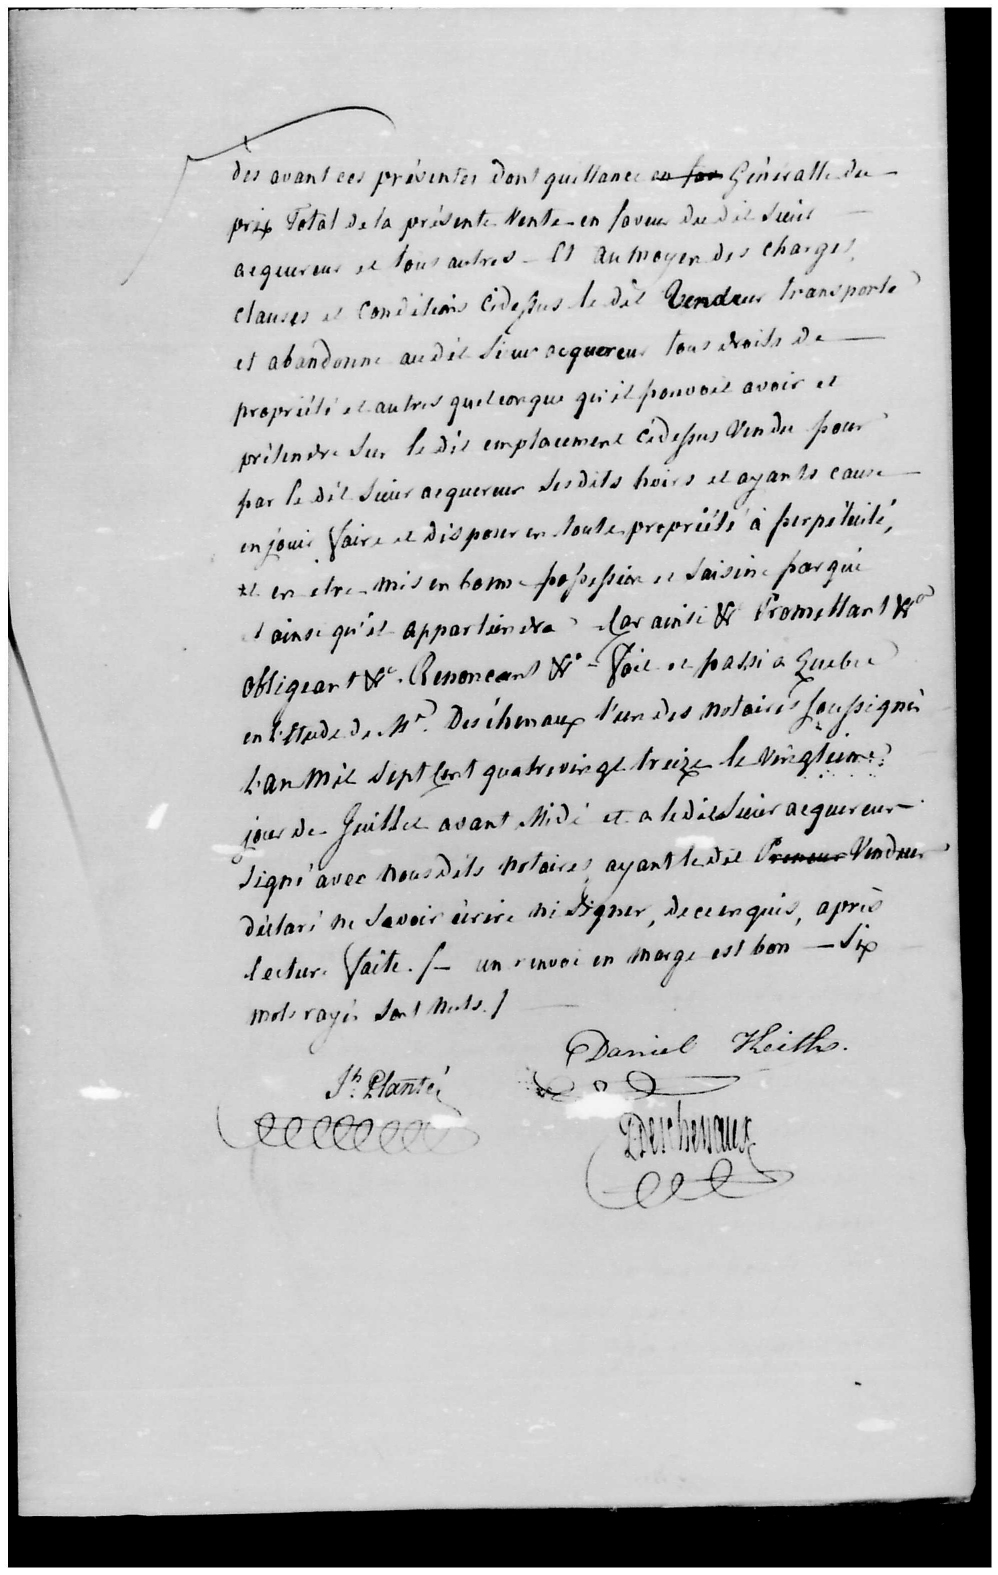 dès avant ces présentes dont quittance en fav Généralle du
prix Total de la présente Vente en faveur du dit Sieur
acquereur et tous autres Et au moyen des charges,
clauses et Conditions Cidessus le dit Vendeur transporte
et abandonne au dit Sieur acquereur tous droits de
propriété et autres quelconque qu'il pouvoit avoir et
prétendre sur le dit emplacement Cidessus Vendu pour
par le dit Sieur acquereur Sesdits hoirs et ayants cause
en jouir faire et disposer en toute propriété à perpétuité,
et en etre mis en bonne possession et Saisine par qui
et ainsi qu'il appartiendra Car ainsi &c Promettant &c
obligeant &c. Renonceant &c - Fait et passé a Quebec
en l'Etude de Mr. Deschenaux l'un des Notaires soussignés
L'an Mil Sept Cent quatrevingt treize le Vingtieme
jour de Juillet avant Midi et a le dit Sieur acquereur
Signé avec Nousdits Notaires, ayant le dit Preneur Vendeur
déclaré ne Savoir écrire ni Signer, de ce enquis, après
lecture faite. /— un renvoi en marge est bon — Six
mots rayés sont Nuls. /
Daniel Keith.
Jh. Planté
PDeschenaux